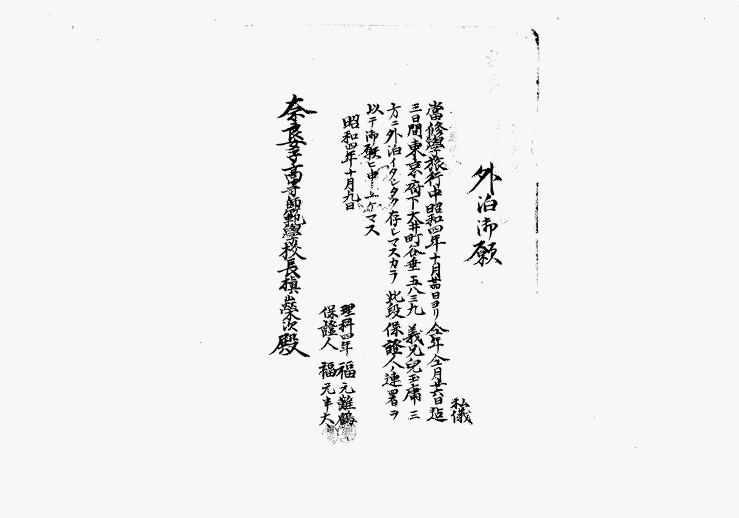 外泊御願
私儀
當修學旅行中昭和四年十月廿四日ヨリ仝年仝月廿六日迄
三日間東京府下大井町谷垂五八三九 義兄兒玉庸三
方ニ外泊イタシタク存ジマスカラ 此段保證人連署ヲ
以テ御願ヒ申上ゲマス
昭和四年十月九日
理科四年 福元難鶴
保證人 福元半太
奈良女子高等師範學校長槇山榮次殿